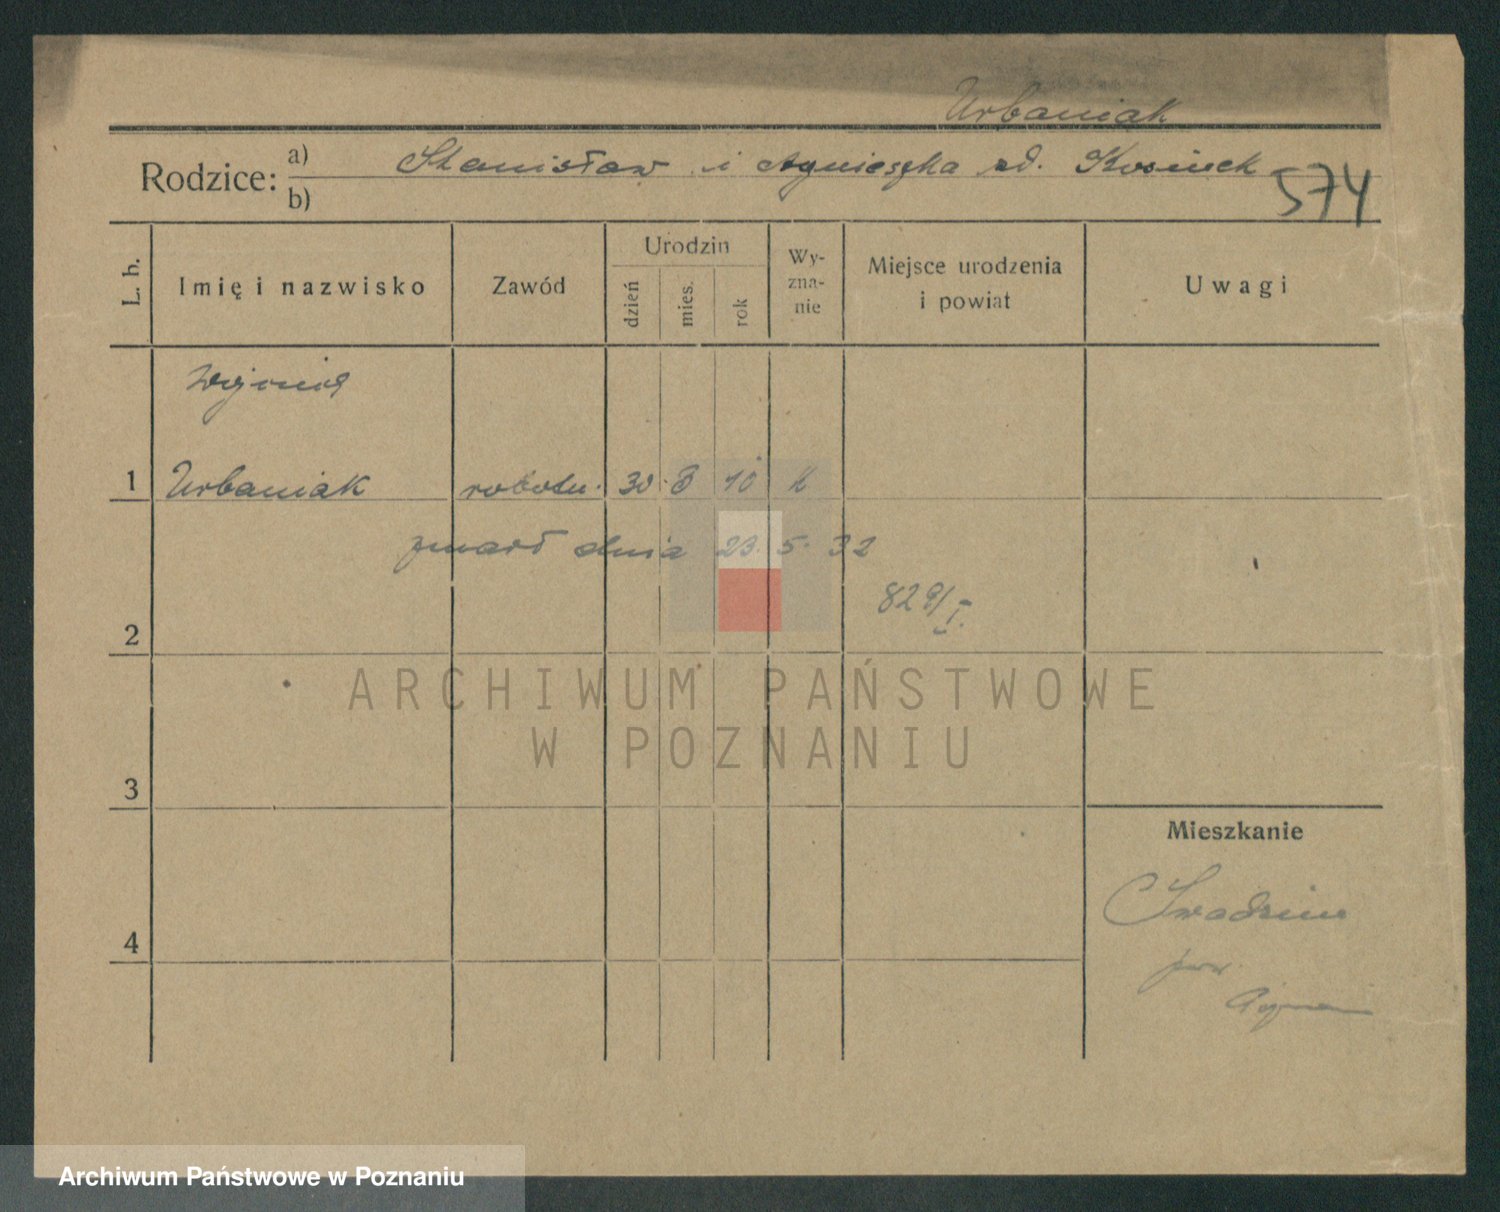 Urbaniak
Rodzice: a) Stanisław i Agnieszka
b)
574
L. b.
Imię i nazwisko
Zawód
Urodzin
dzień
mies.
rok
Wy-
zna-
nie
Miejsce urodzenia
i powiat
Uwagi
1 Urbaniak robotn. 30 8 10 k
zmarł dnia 23. 5. 32
829/I.
2
ARCHIWUM PAŃSTWOWE
W POZNANIU
3
Mieszkanie
4
Swadzim
pow.
Archiwum Państwowe w Poznaniu